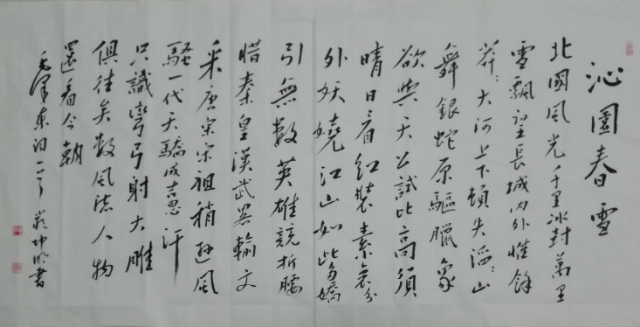 沁園春雪
北國風光千里冰封萬里
雪飄望長城內外惟餘
莽〻大河上下頓失滔〻山
舞銀蛇原驅臘象
欲與天公試比高須
晴日看紅裝素裹分
外妖嬈江山如此多嬌
引無數英雄競折腰
惜秦皇漢武畧輸文
采唐宗宋祖稍遜風
騷一代天驕成吉思汗
只識彎弓射大雕
俱往矣數風流人物
還看今朝
毛澤東詞 坤 書